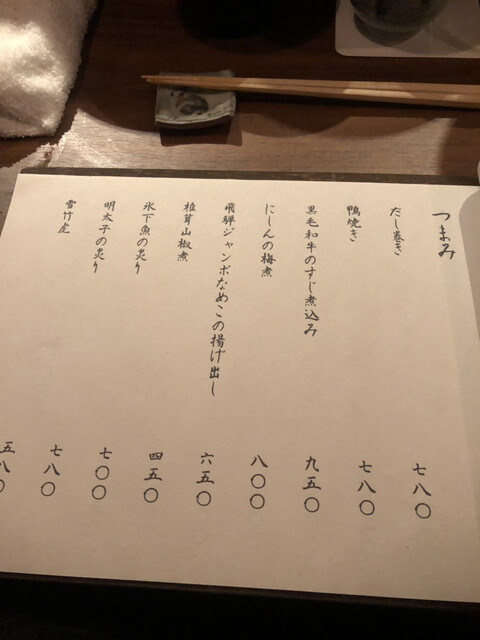 つまみ
だし巻き 七八〇
鴨焼き 七八〇
黒毛和牛のすじ煮込み 九五〇
にしんの梅煮 八〇〇
飛騨ジャンボなめこの揚げ出し 六五〇
椎茸山椒煮 四五〇
氷下魚の炙り 七〇〇
明太子の炙り 七八〇
雪竹虎 五八〇